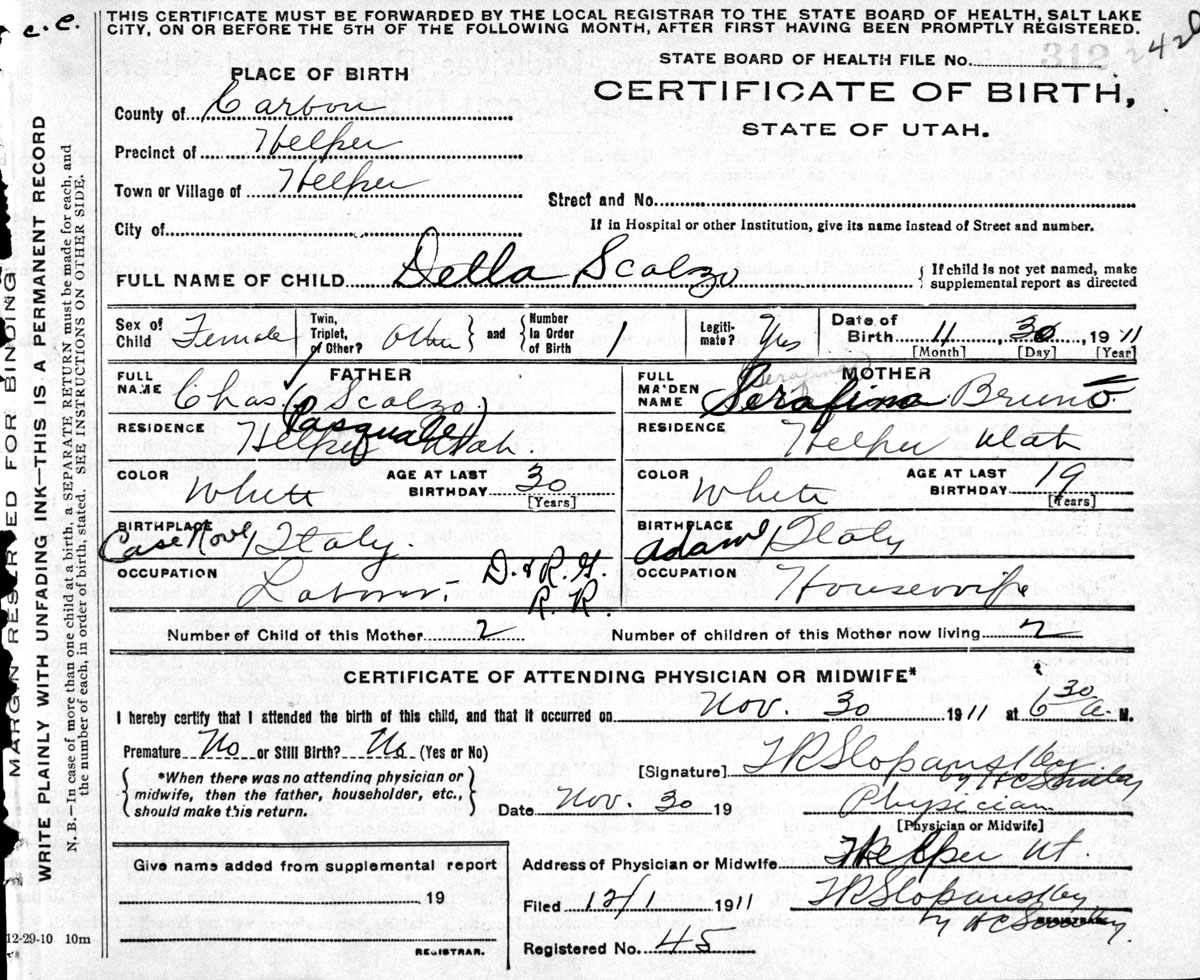 c.c.
THIS CERTIFICATE MUST BE FORWARDED BY THE LOCAL REGISTRAR TO THE STATE BOARD OF HEALTH, SALT LAKE
CITY, ON OR BEFORE THE 5TH OF THE FOLLOWING MONTH, AFTER FIRST HAVING BEEN PROMPTLY REGISTERED.
STATE BOARD OF HEALTH FILE No. 312
PLACE OF BIRTH
CERTIFICATE OF BIRTH,
STATE OF UTAH.
County of Carbon
Precinct of Helper
Town or Village of Helper
Street and No.
City of
If in Hospital or other Institution, give its name Instead of Street and number.
FULL NAME OF CHILD Della Scalzo
{If child is not yet named, make
supplemental report as directed
Sex of Child Female
Twin, Triplet, or Other? Other } and { Number in Order of Birth 1
Legiti-mate? Yes
Date of Birth 11, 30, 1911
[Month] [Day] [Year]
FATHER
FULL NAME Chas (Pasquale) Scalzo
RESIDENCE Helper Utah.
COLOR White
AGE AT LAST BIRTHDAY 30
[Years]
BIRTHPLACE Case Nove / Italy.
OCCUPATION Laborer. D. & R. G. R. R.
MOTHER
FULL MAIDEN NAME Serafina Bruno
Serafina
RESIDENCE Helper Utah
COLOR White
AGE AT LAST BIRTHDAY 19
[Years]
BIRTHPLACE Adami / Italy
OCCUPATION Housewife
Number of Child of this Mother 2
Number of children of this Mother now living 2
CERTIFICATE OF ATTENDING PHYSICIAN OR MIDWIFE*
I hereby certify that I attended the birth of this child, and that it occurred on Nov. 30 1911 at 6 30 a. M.
Premature No or Still Birth? No (Yes or No)
{ *When there was no attending physician or
midwife, then the father, householder, etc.,
should make this return. }
[Signature]
Date Nov. 30 19
Physician
[Physician or Midwife]
Give name added from supplemental report
19
REGISTRAR.
Address of Physician or Midwife Helper Ut.
Filed 12/1 1911
REGISTRAR.
Registered No. 45
12-29-10 10m
MARGIN RESERVED FOR BINDING
WRITE PLAINLY WITH UNFADING INK—THIS IS A PERMANENT RECORD
N. B.—In case of more than one child at a birth, a SEPARATE RETURN must be made for each, and
the number of each, in order of birth, stated. SEE INSTRUCTIONS ON OTHER SIDE.